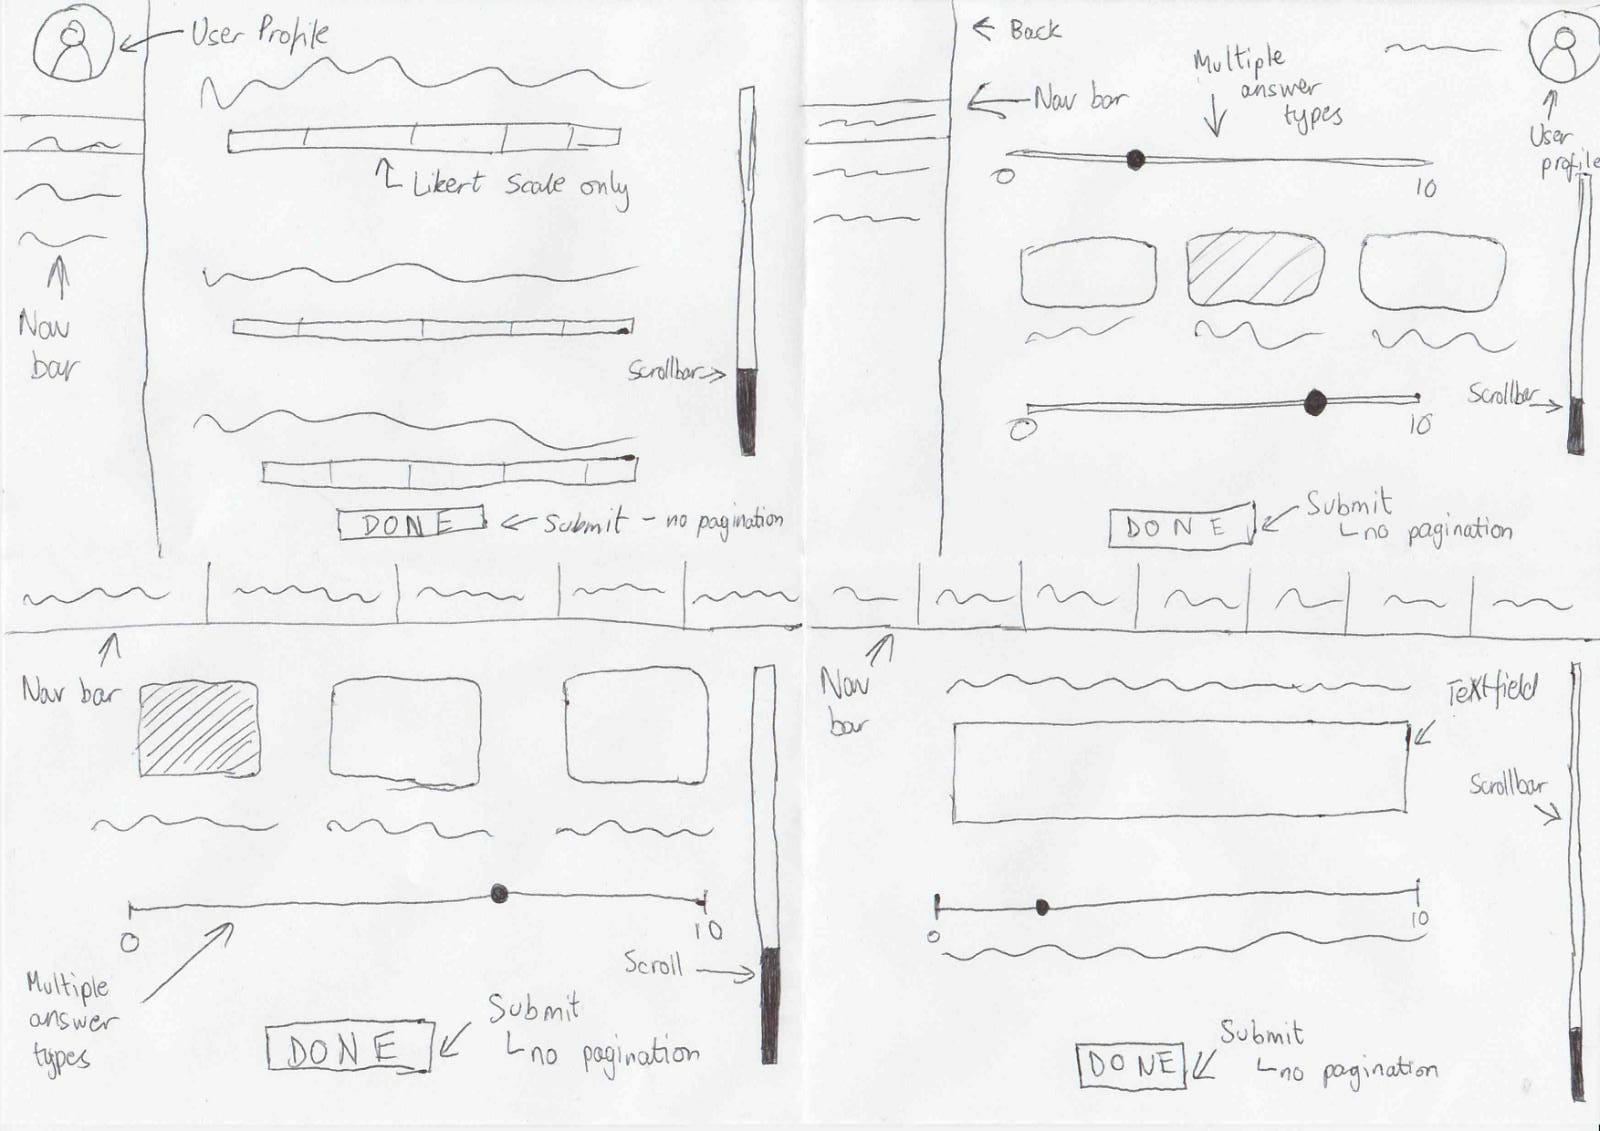 User Profile
Likert Scale only
Nav
bar
Scrollbar
DONE
Submit - no pagination
Back
Nav bar
Multiple
answer
types
User
profile
0
10
Scrollbar
0
10
DONE
Submit
no pagination
Nav bar
0
10
Multiple
answer
types
Scroll
DONE
Submit
no pagination
Nav
bar
Textfield
Scrollbar
0
10
DONE
Submit
no pagination